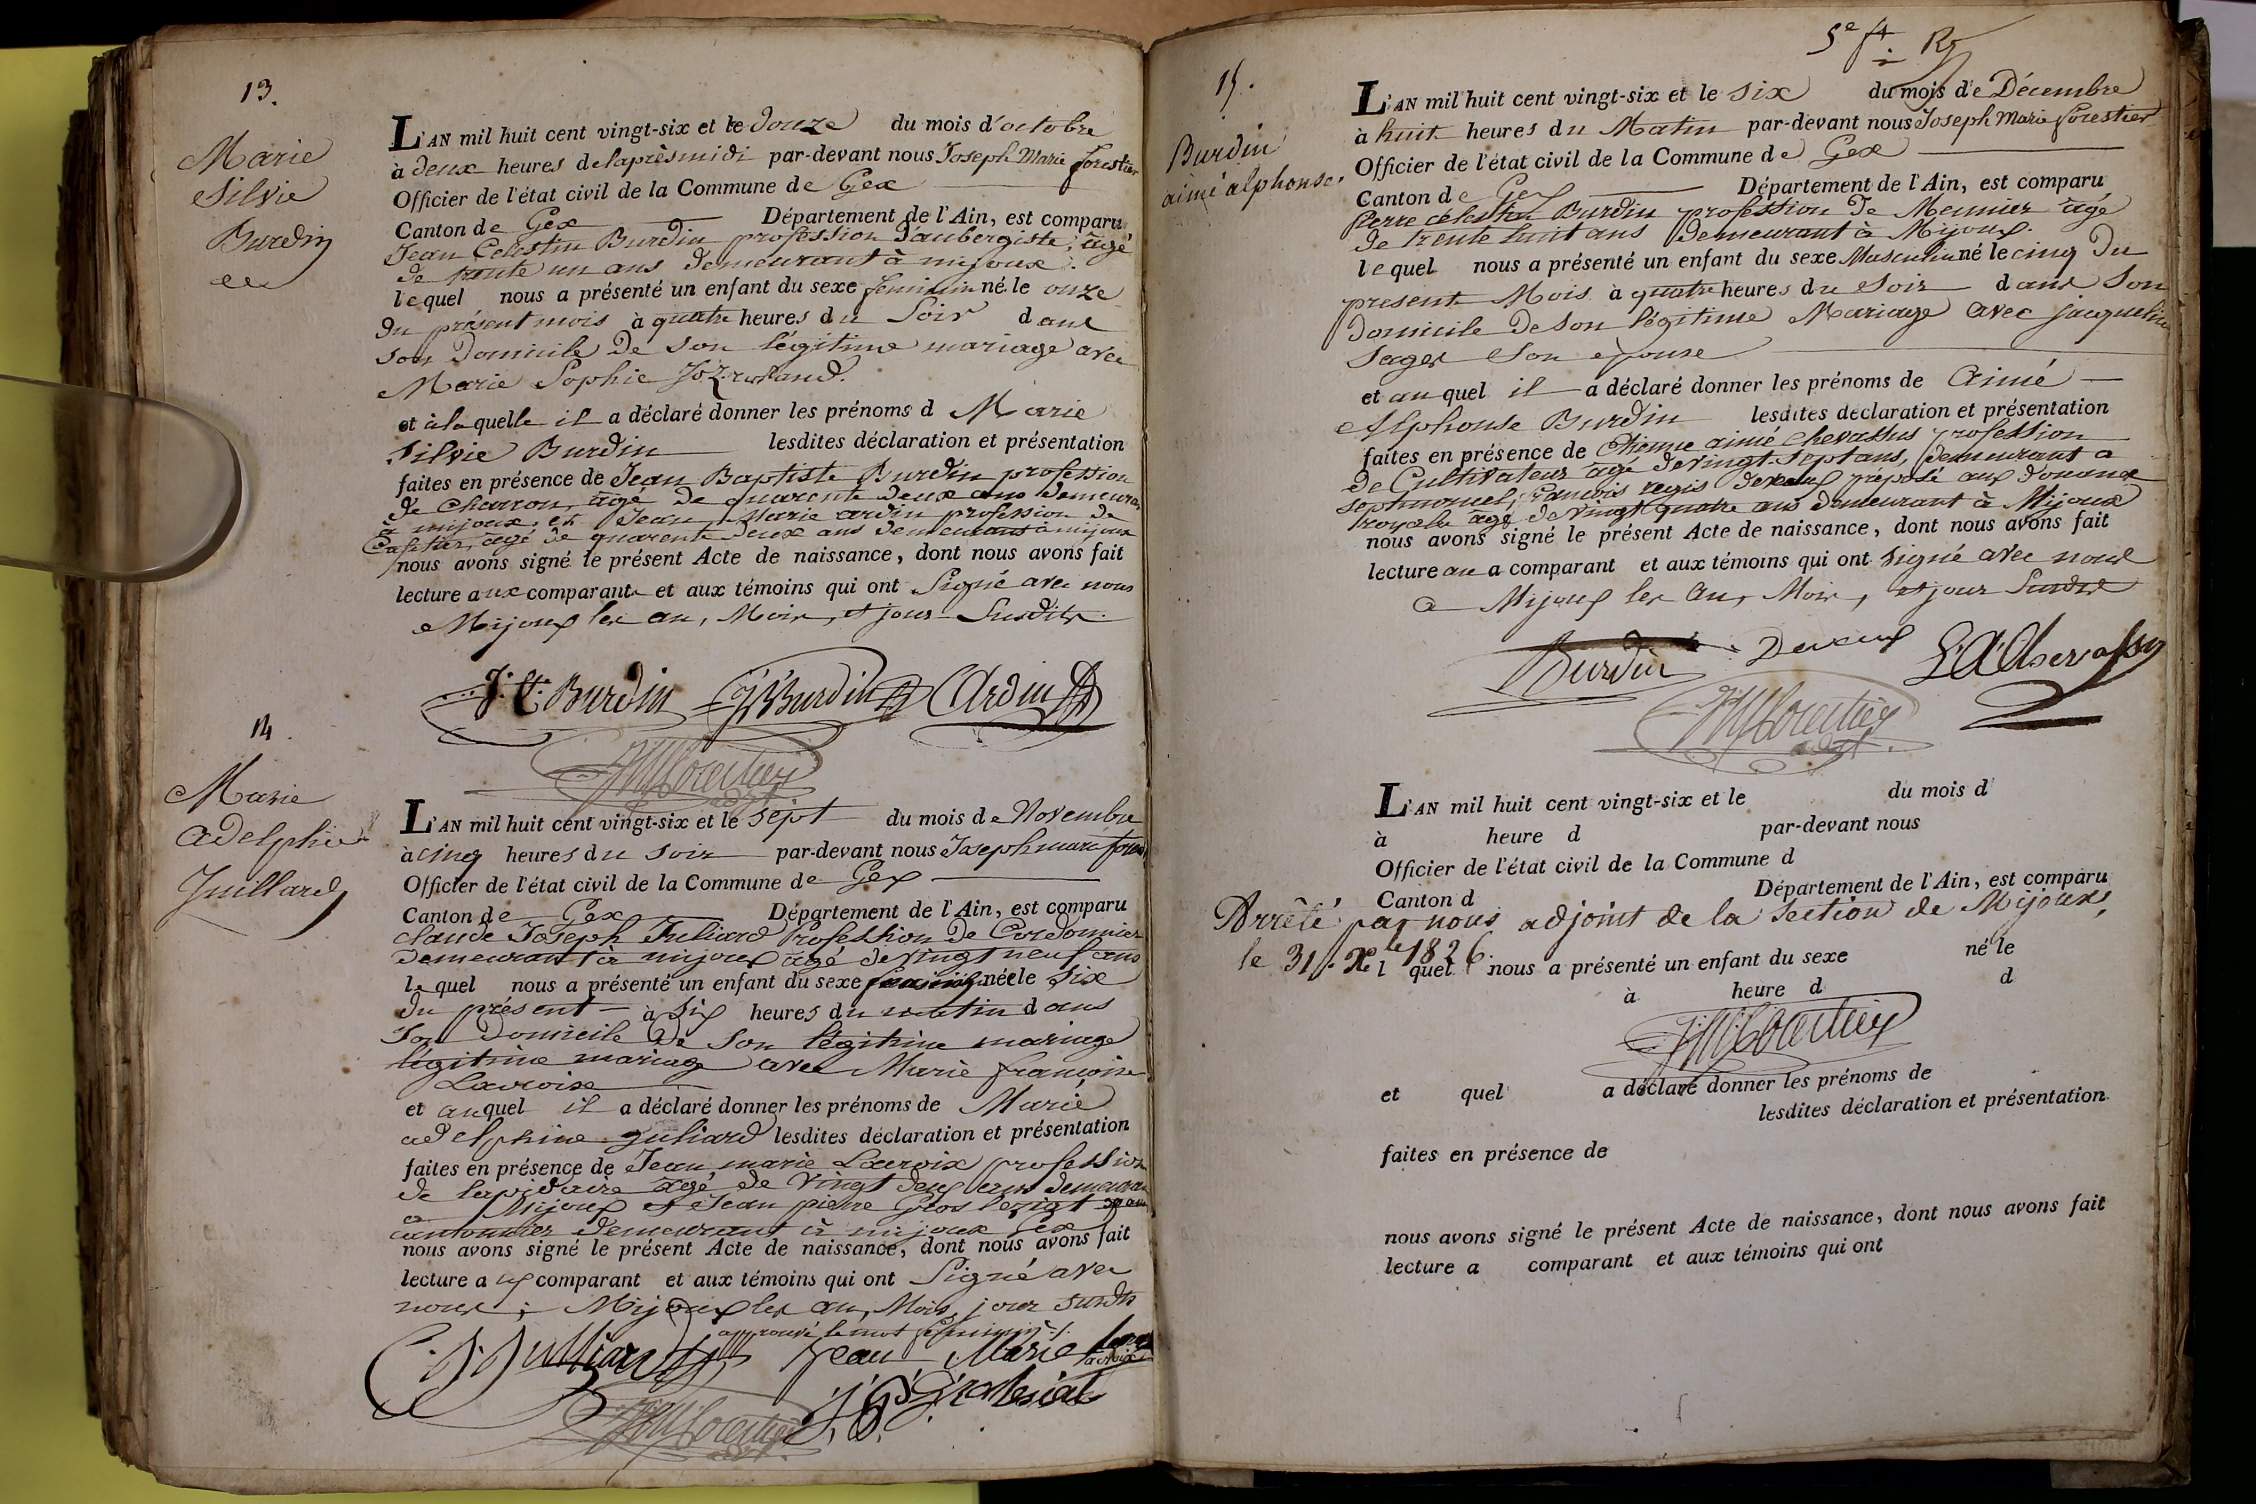 13.
Marie
Silvie
Burdin
L'AN mil huit cent vingt-six et le douze du mois d'octobre
à deux heures delaprèsmidi par-devant nous Joseph Marie forestier
Officier de l'état civil de la Commune de Gex
Canton de Gex Département de l'Ain, est comparu
Jean Celestin Burdin profession d'aubergiste, âgé
de trante un ans demeurant à mijoux.
lequel nous a présenté un enfant du sexe feminin né le onze
du présent mois à quatre heures du Soir dans
son Domicile de son légitime mariage avec
Marie Sophie
et à la quelle il a déclaré donner les prénoms d Marie
Silvie Burdin lesdites déclaration et présentation
faites en présence de Jean Baptiste Burdin profession
de charron, âgé de quarente deux ans demeurant
à mijoux, et Jean Marie ardin profession de
âgé de quarente deux ans demeurant à mijoux
nous avons signé le présent Acte de naissance, dont nous avons fait
lecture aux comparants et aux témoins qui ont Signé avec nous
Mijoux les an, Mois, et jour Susdits.
J. C. Burdin JB Burdin Ardin
JM forestier
14.
Marie
adelphine
Juillard
L'AN mil huit cent vingt-six et le sept du mois de Novembre
à cinq heures du soir par-devant nous Joseph marie forestier
Officier de l'état civil de la Commune de Gex
Canton de Gex Département de l'Ain, est comparu
claude Joseph Juliard Profession de Cordonnier
demeurant à mijoux âgé de vingt neuf ans
lequel nous a présenté un enfant du sexe feminin née le six
du présent à six heures du matin dans
son Domicile De son légitime mariage
légitime mariage avec Marie françoise
Lacroix
et auquel il a déclaré donner les prénoms de Marie
adelphine juliard lesdites déclaration et présentation
faites en présence de Jean marie Lacroix profession
de lapidaire âgé de vingt deux ans demeurant
a Mijoux et Jean pierre Gros
cantonnier demeurant à mijoux Gex
nous avons signé le présent Acte de naissance, dont nous avons fait
lecture aux comparant et aux témoins qui ont Signé avec
nous; Mijoux les an, Mois, jour susdits
approuvé le mot feminin
C. J. Julliard Jean Marie Lacroix
JM forestier
5e ft
15.
Burdin
aimé alphonse.
L'AN mil huit cent vingt-six et le six du mois de Décembre
à huit heures du Matin par-devant nous Joseph Marie forestier
Officier de l'état civil de la Commune de Gex
Canton de Gex Département de l'Ain, est comparu
Pierre célestin Burdin profession de Meunier âgé
de trente huit ans demeurant à Mijoux.
lequel nous a présenté un enfant du sexe Masculin né le cinq du
present Mois à quatre heures du soir dans Son
domicile de son légitime Mariage avec jacqueline
Son epouse
et auquel il a déclaré donner les prénoms de Aimé
Alphonse Burdin lesdites déclaration et présentation
faites en présence de Etienne aimé Chevassus profession
de Cultivateur âgé de vingt-sept ans, demeurant a
septmoncel, francois regis préposé aux douanes
royale âgé de vingt quatre ans demeurant à Mijoux
nous avons signé le présent Acte de naissance, dont nous avons fait
lecture au a comparant et aux témoins qui ont signé avec nous
a Mijoux les an, Mois, et jour Susdits
Burdin Chevassus
JM forestier
L'AN mil huit cent vingt-six et le du mois d
à heure d par-devant nous
Officier de l'état civil de la Commune d
Canton d Département de l'Ain, est comparu
Arrêté par nous adjoint de la section de Mijoux,
le 31 Xbre 1826.
l quel nous a présenté un enfant du sexe né le
à heure d d
JM forestier
et quel a déclaré donner les prénoms de
lesdites déclaration et présentation
faites en présence de
nous avons signé le présent Acte de naissance, dont nous avons fait
lecture a comparant et aux témoins qui ont